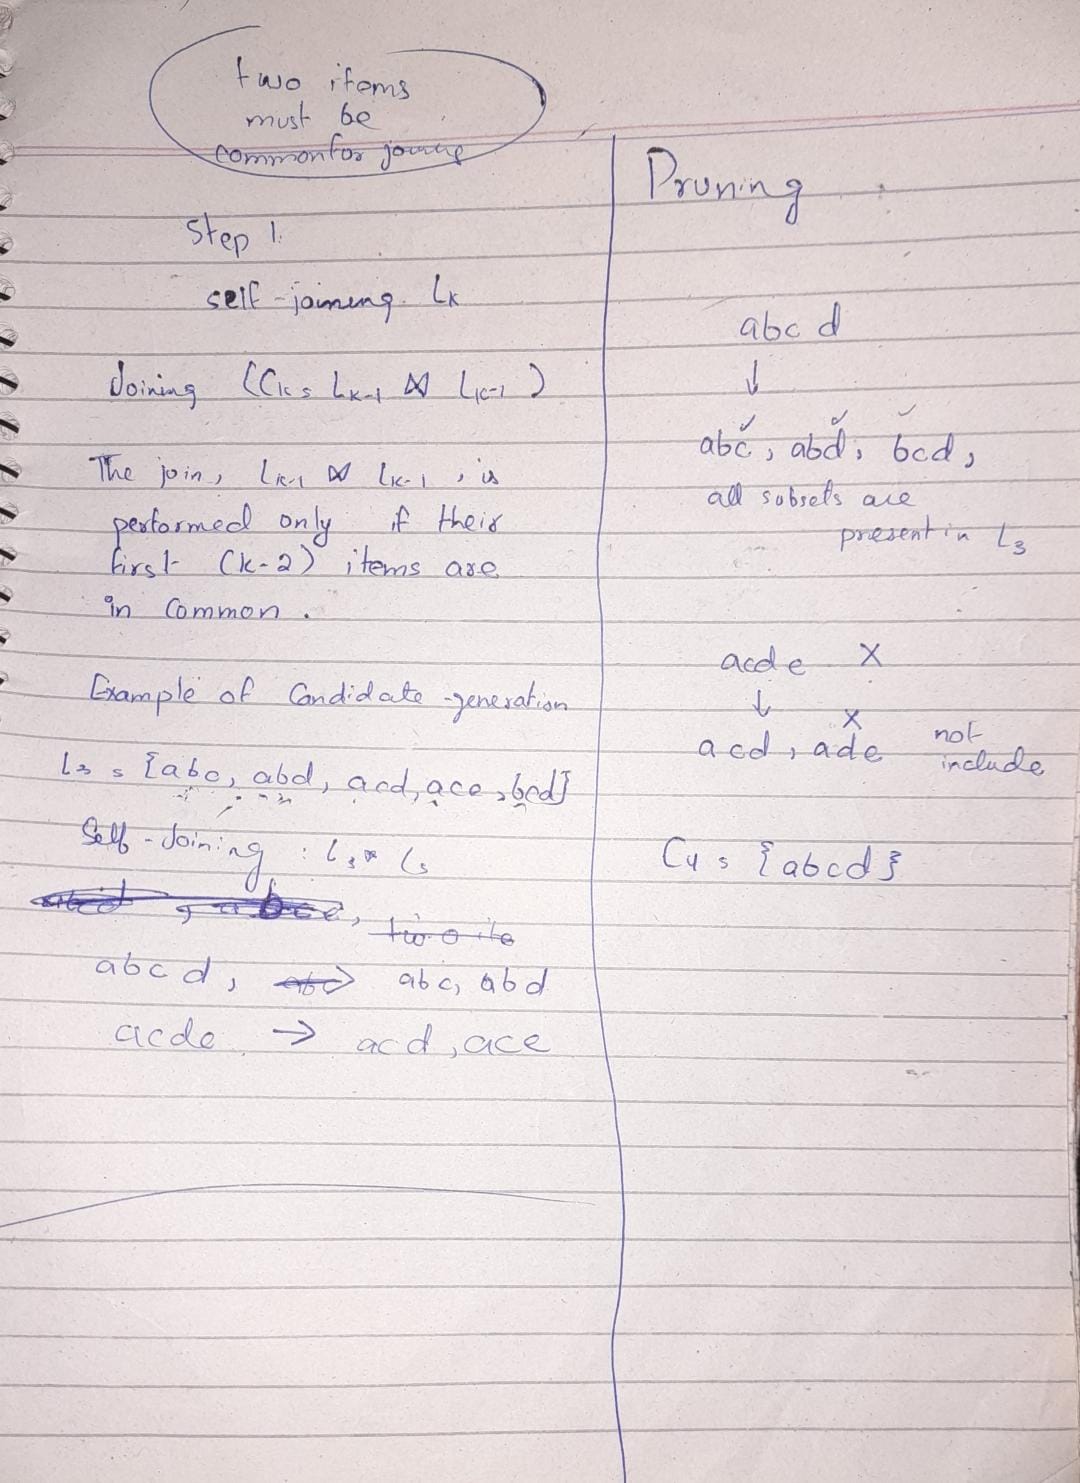 two items
must be
common for joining
Step 1.
self-joining Lk
Joining (Ck = Lk-1 ⋈ Lk-1)
The join, Lk-1 ⋈ Lk-1, is
performed only if their
first (k-2) items are
in common.
Example of Candidate-generation
L3 = {abc, abd, acd, ace, bcd}
Self-Joining : L3 * L3
abcd, → abc, abd
acde → acd, ace
Pruning
abcd
↓
abc✓, abd✓, bcd✓,
all subsets are
present in L3
acde X
↓ X
acd, ade not
include
C4 = {abcd}